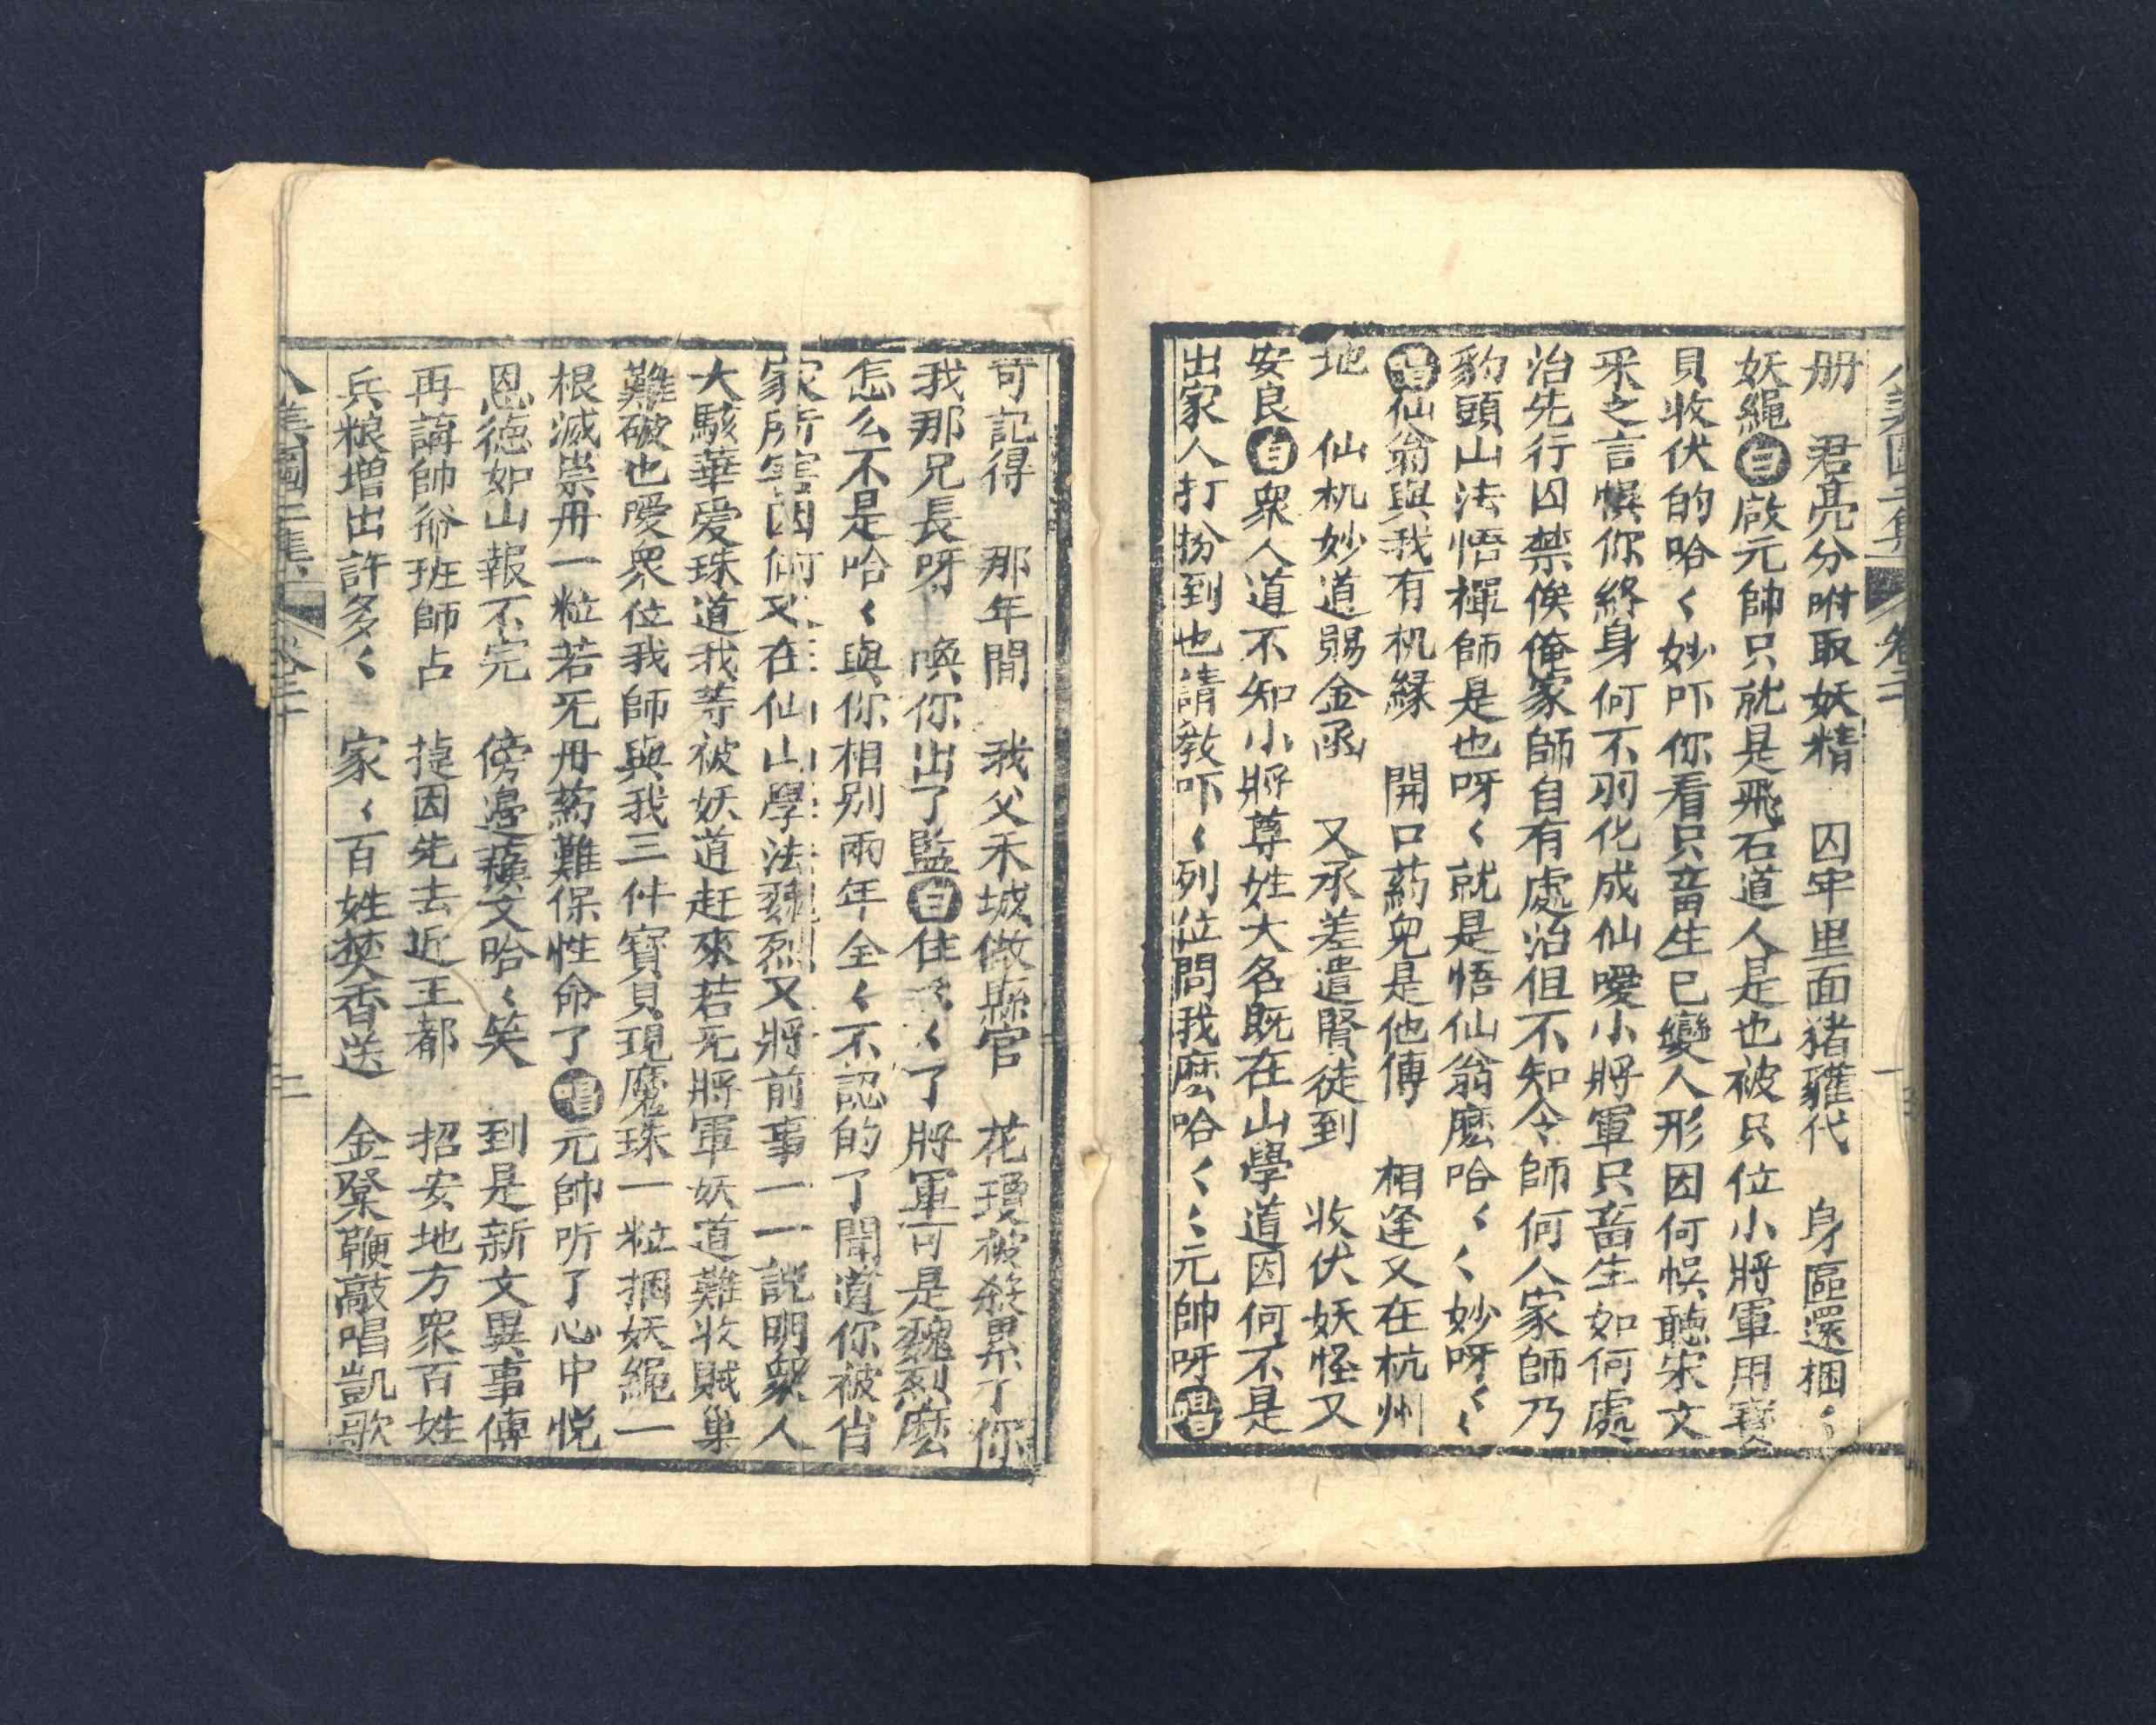 八美圖二集 卷二十
册 君亮分咐取妖精 囚牢里面猪玀代 身區還梱〻
妖繩白啟元帥只就是飛石道人是也被只位小將軍用寳
貝收伏的哈〻妙吓你看只畜生已變人形因何悞聽宋文
采之言悞你終身何不羽化成仙噯小將軍只畜生如何處
治先行囚禁俟俺家師自有處治但不知令師何人家師乃
豹頭山法悟禪師是也呀〻就是悟仙翁麽哈〻〻妙呀〻〻
唱仙翁與我有机緣 開口葯兒是他傳 相逢又在杭州
地 仙机妙道賜金函 又承差遣賢徒到 收伏妖怪又
安良白衆人道不知小將尊姓大名既在山學道因何不是
出家人打扮到也請教吓〻列位問我麽哈〻〻元帥呀唱
可記得 那年間 我父禾城做縣官 花瓊被殺累了你
我那兄長呀 喚你出了監白住〻〻了將軍可是魏烈麽
怎么不是哈〻與你相别兩年全〻不認的了聞道你被肖
家所害因何又在仙山學法魏烈又將前事一一說明衆人
大駭華愛珠道我等被妖道赶來若无將軍妖道難收賊巢
難破也噯衆位我師與我三件寳貝現魔珠一粒捆妖繩一
根滅祟丹一粒若无丹葯難保性命了唱元帥所了心中悦
恩德如山報不完 傍邉龔文哈〻笑 到是新文異事傳
再講帥爺班師占 㨗因先去近王都 招安地方衆百姓
兵粮增出許多〻 家〻百姓焚香送 金凳鞭敲唱凱歌
八美圖二集 卷二十 二